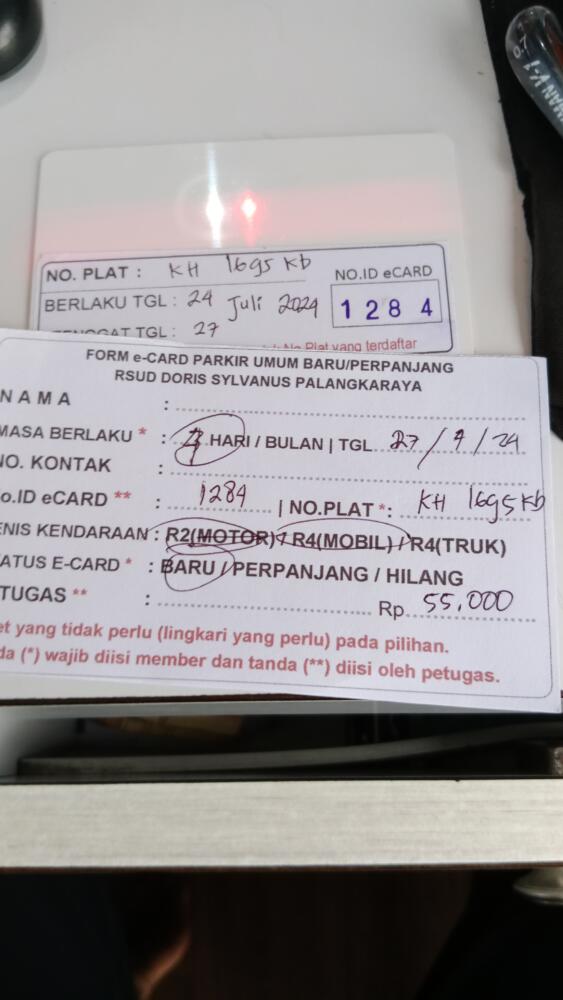 NO. PLAT : KH 1695 Kb
NO.ID eCARD
BERLAKU TGL : 24 Juli 2024
1284
TGL : 27
No Plat yang terdaftar
FORM e-CARD PARKIR UMUM BARU/PERPANJANG
RSUD DORIS SYLVANUS PALANGKARAYA
N A M A :
MASA BERLAKU * : HARI / BULAN | TGL 27/7/24
NO. KONTAK :
No.ID eCARD ** : 1284 | NO.PLAT *: KH 1695 Kb
ENIS KENDARAAN : R2(MOTOR) / R4(MOBIL) / R4(TRUK)
TATUS E-CARD * : BARU / PERPANJANG / HILANG
TUGAS ** : Rp 55,000
et yang tidak perlu (lingkari yang perlu) pada pilihan.
da (*) wajib diisi member dan tanda (**) diisi oleh petugas.